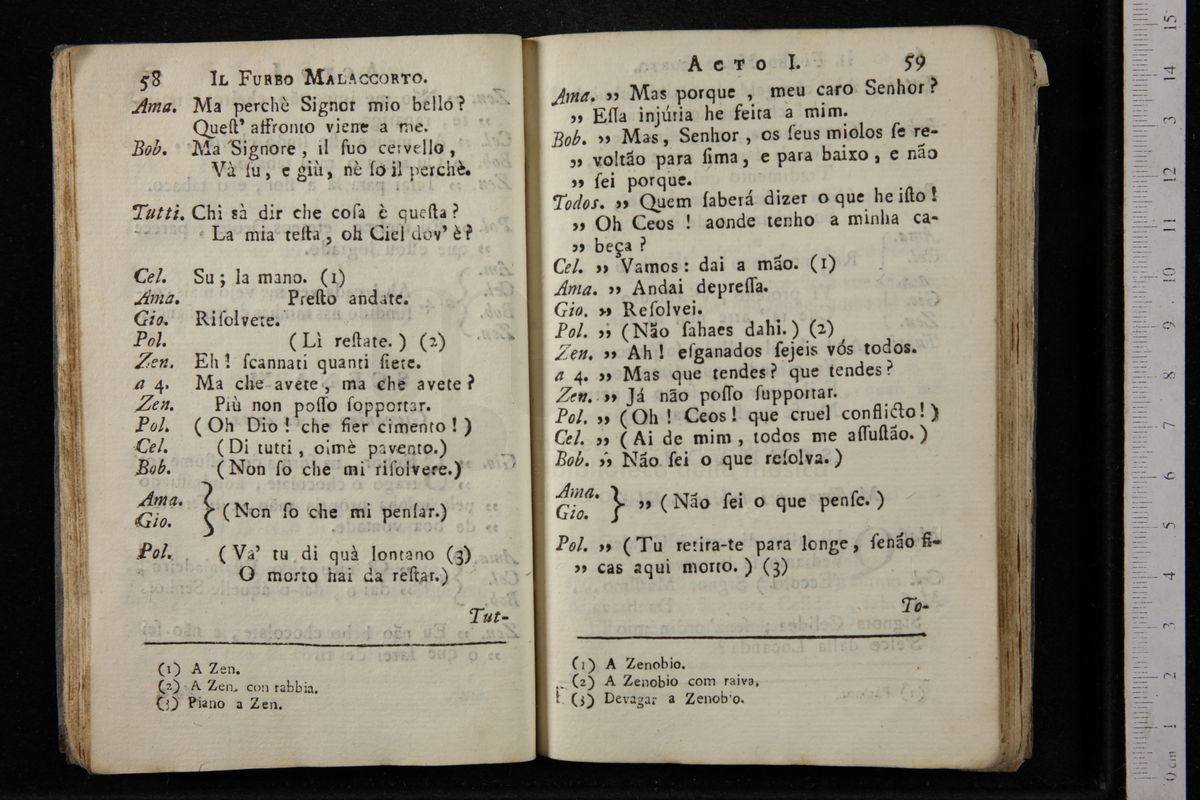 58 IL FURBO MALACCORTO.
Ama. Ma perchè Signor mio bello?
Queſt' affronto viene a me.
Bob. Ma Signore, il ſuo cervello,
Và ſu, e giù, nè ſo il perchè.
Tutti. Chi sà dir che coſa è queſta?
La mia teſta, oh Ciel dov' è?
Cel. Su; la mano. (1)
Ama. Preſto andate.
Gio. Riſolvete.
Pol. (Lì reſtate.) (2)
Zen. Eh! ſcannati quanti ſiete.
a 4. Ma che avete, ma che avete?
Zen. Più non poſſo ſopportar.
Pol. (Oh Dio! che fier cimento!)
Cel. (Di tutti, oimè pavento.)
Bob. (Non ſo che mi riſolvere.)
Ama.
Gio. } (Non ſo che mi penſar.)
Pol. (Va' tu di quà lontano (3)
O morto hai da reſtar.)
Tut-
(1) A Zen.
(2) A Zen. con rabbia.
(3) Piano a Zen.
ACTO I. 59
Ama. ,, Mas porque, meu caro Senhor?
,, Eſſa injúria he feita a mim.
Bob. ,, Mas, Senhor, os ſeus miolos ſe re-
,, voltão para ſima, e para baixo, e não
,, ſei porque.
Todos. ,, Quem ſaberá dizer o que he iſto!
,, Oh Ceos! aonde tenho a minha ca-
,, beça?
Cel. ,, Vamos: dai a mão. (1)
Ama. ,, Andai depreſſa.
Gio. ,, Reſolvei.
Pol. ,, (Não ſahaes dahi.) (2)
Zen. ,, Ah! eſganados ſejeis vós todos.
a 4. ,, Mas que tendes? que tendes?
Zen. ,, Já não poſſo ſupportar.
Pol. ,, (Oh! Ceos! que cruel conflicto!)
Cel. ,, (Ai de mim, todos me aſſuſtão.)
Bob. ,, Não ſei o que reſolva.)
Ama.
Gio. } ,, (Não ſei o que penſe.)
Pol. ,, (Tu retira-te para longe, ſenão fi-
,, cas aqui morto.) (3)
To-
(1) A Zenobio.
(2) A Zenobio com raiva.
(3) Devagar a Zenobio.
0 cm 1 2 3 4 5 6 7 8 9 10 11 12 13 14 15